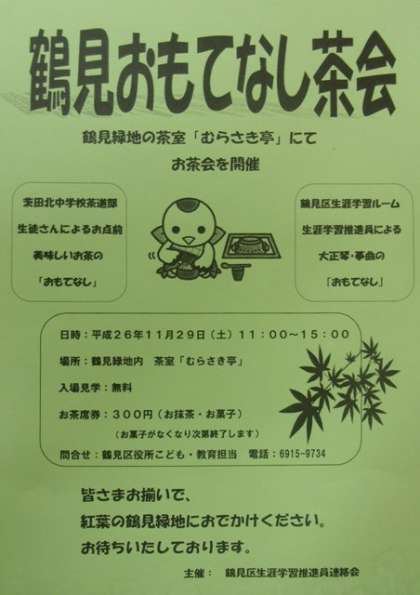 鶴見おもてなし茶会
鶴見緑地の茶室「むらさき亭」にて
お茶会を開催
茨田北中学校茶道部
生徒さんによるお点前
美味しいお茶の
「おもてなし」
鶴見区生涯学習ルーム
生涯学習推進員による
大正琴・箏曲の
「おもてなし」
日時：平成26年11月29日（土）11：00～15：00
場所：鶴見緑地内　茶室「むらさき亭」
入場見学：無料
お茶席券：300円（お抹茶・お菓子）
（お菓子がなくなり次第終了します）
問合せ：鶴見区役所こども・教育担当　電話：6915-9734
皆さまお揃いで、
紅葉の鶴見緑地におでかけください。
お待ちいたしております。
主催：　鶴見区生涯学習推進員連絡会